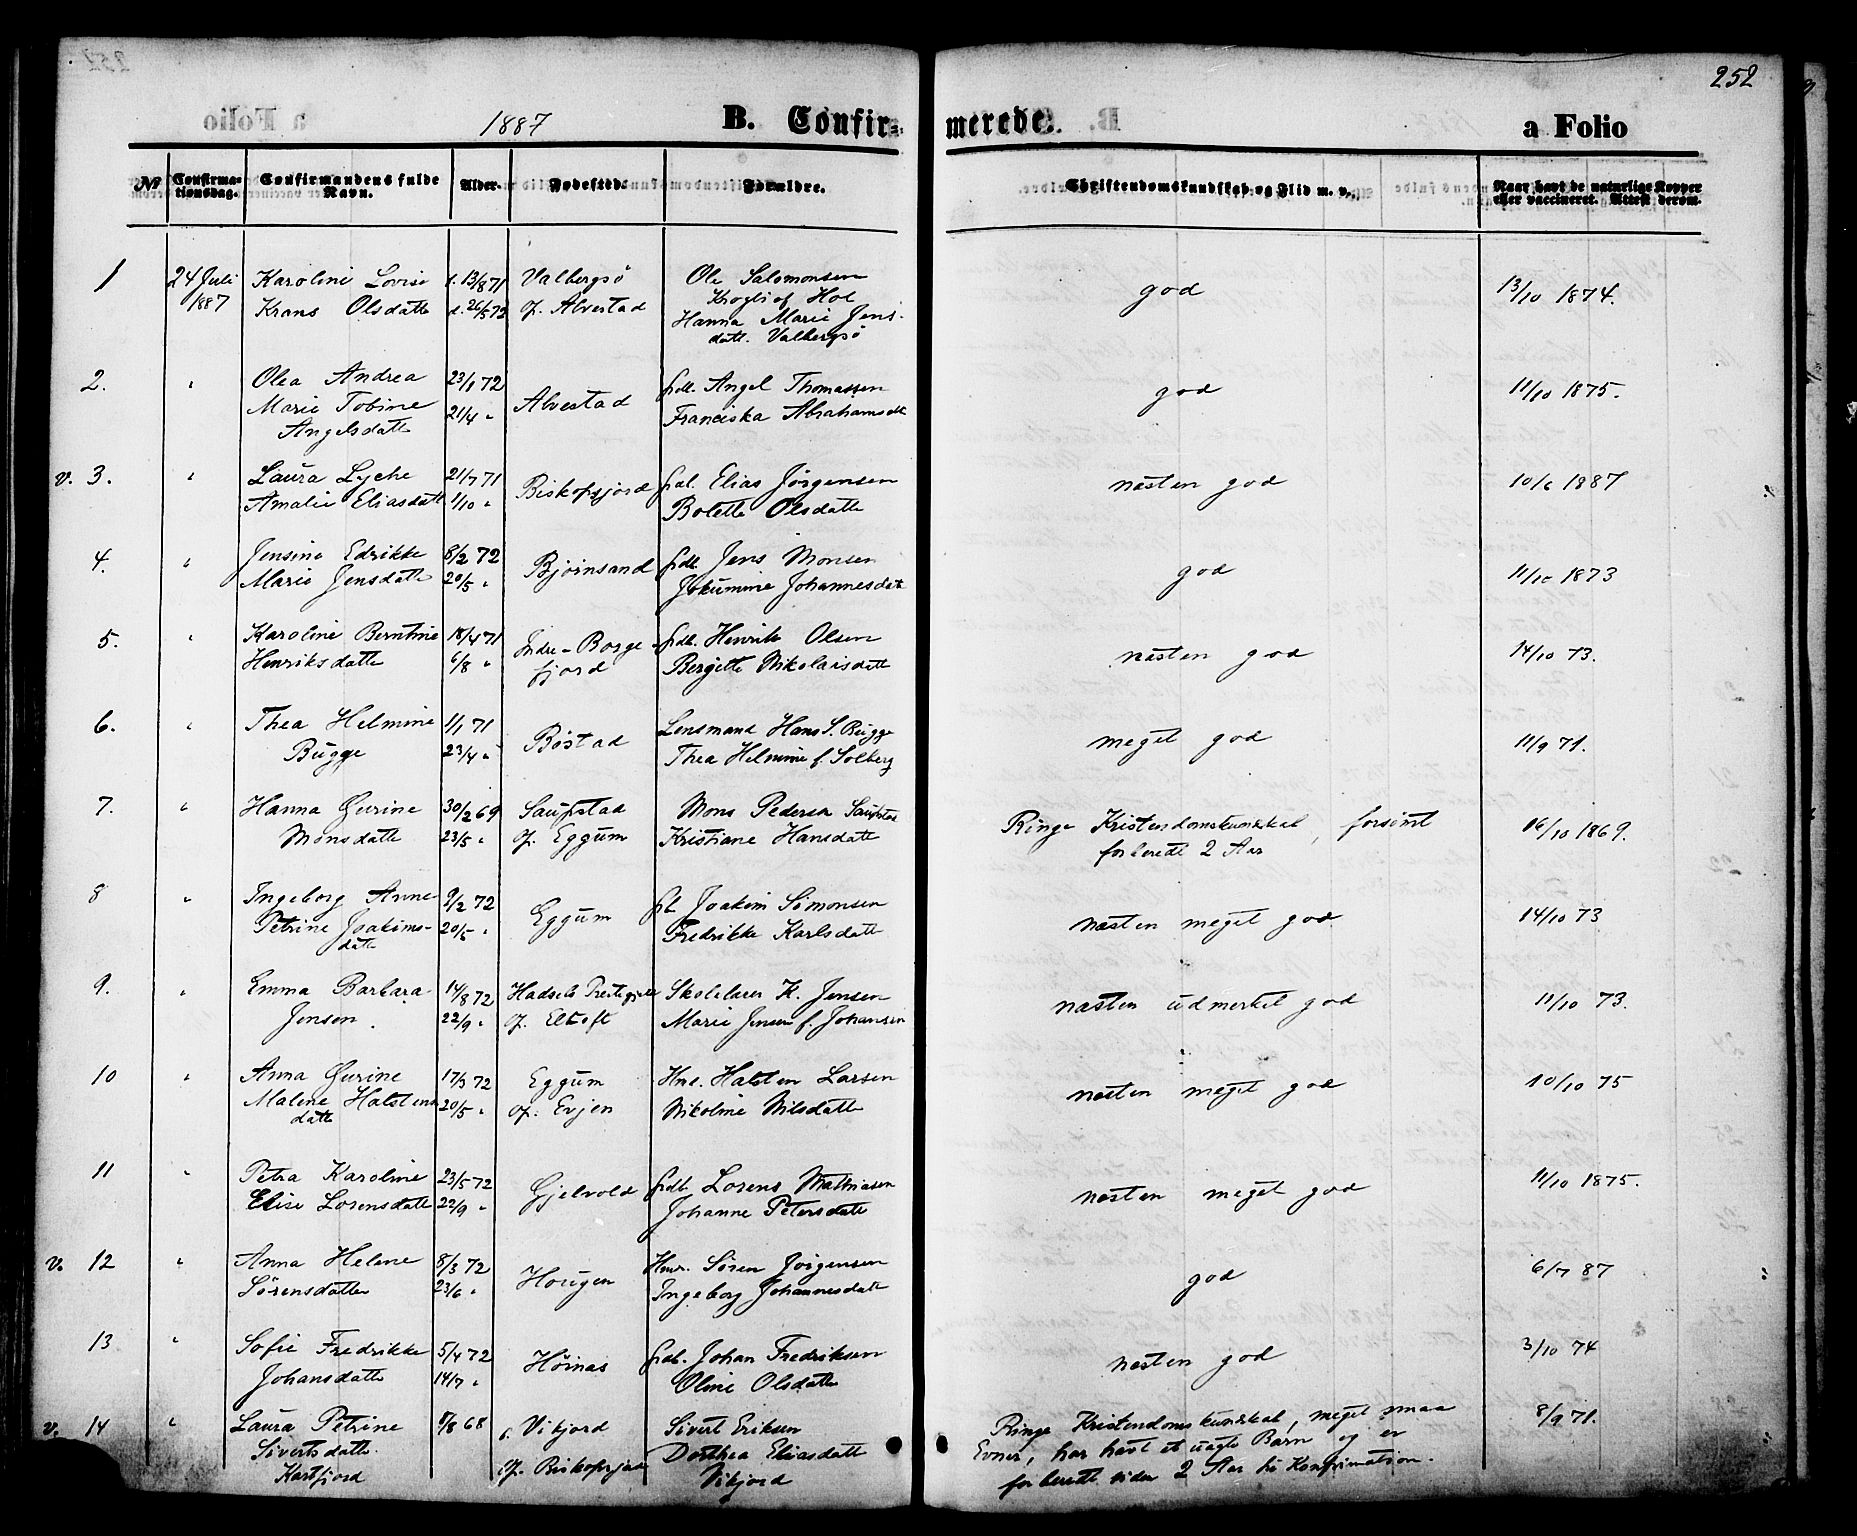 252
1887
B. Confirmerede.
a Folio
No
Confirmationsdag.
Confirmandens fulde Navn.
Alder.
Fødested.
Forældre.
Christendomskundskab og Flid m. v.
Naar havt de naturlige Kopper eller vaccineret. Attest derom.
1 24 Juli Karoline Lovise f. 13/8 71 Valbergsö Ole Salomonsen god 13/10 1874.
1887 Krans Olsdatte d. 26/5 72 Of. Alvestad Hol
Hanna Marie Jens-
datt. Valbergsö
2. " Olea Andrea 23/1 72 Alvestad frdb. Angel Thomassen god 11/10 1875.
Marie Tobine 21/4 " Franciska Abrahamsdt
Angelsdatte
v. 3. " Laura Lyche 21/7 71 Biskopsjord frdb. Elias Jörgensen næsten god 10/6 1887
Amalie Eliasdatt 1/10 " Bolette Olsdatte
4. " Jensine Edrikke 8/2 72 Bjørnsand frdb. Jens Monsen god 11/10 1873
Marie Jensdatte 20/5 " Jokumine Johannesdatt
5. " Karoline Berntine 18/4 71 Indre-Borge frdb. Henrik Olsen næsten god 14/10 73.
Henriksdatte 6/8 " fjord Bergitte Nikolaisdatt
6. " Thea Helmine 1/1 71 Bøstad Lensmand Hans S. Bugge meget god 11/9 71.
Bugge 23/4 " Thea Helmine f. Solberg
7. " Hanna Gurine 30/2 69 Saupstad Mons Pedersen Saupstad Ringe Kristendomskundskab, forsömt 16/10 1869.
Monsdatte 23/5 " Of. Eggum Kristiane Hansdatt forberedt 2 Aar
8 " Ingeborg Anne 9/2 72 Eggum Joakim Simonsen næsten meget god 14/10 73
Petrine Joakims- 20/5 " Fredrikke Karlsdatt
datte
9. " Emma Barbara 14/8 72 Hadsels Prestegjeld Skolelærer K. Jensen næsten udmerket god 11/10 73.
Jensen. 22/9 " Of. Eltoft Marie Jensen f. Johansen
10 " Anna Gurine 17/3 72 Eggum Halsten Larsen næsten meget god 10/10 75
Malene Halstens 20/5 " Of. Evjen Nikoline Nilsdatte
datte
11 " Petra Karoline 23/5 72 Gjelvold frdb. Lorens Mathiasen næsten meget god 11/10 1875.
Elise Lorensdatte 22/9 " Johanne Petersdatt
v. 12 " Anna Helene 8/3 72 Hougen Søren Jörgensen god 6/7 87
Sørensdatte 23/6 " Ingeborg Johannesdatt
13 " Sofie Fredrikke 5/4 72 Höinas frdb. Johan Fredriksen næsten god 3/10 74
Johansdatte 14/7 " Oline Olsdatte
v. 14 " Laura Petrine 9/8 68 f. Vikjord Sivert Eriksen Ringe Kristendomskundskab, meget smaa 8/9 71.
Sivertsdatte Of. Biskopsjord Dorthea Eliasdatt Evner, har havt et uægte Barn og er
Kartfjord Vikjord forberedt siden 2 Aar til Konfirmation.